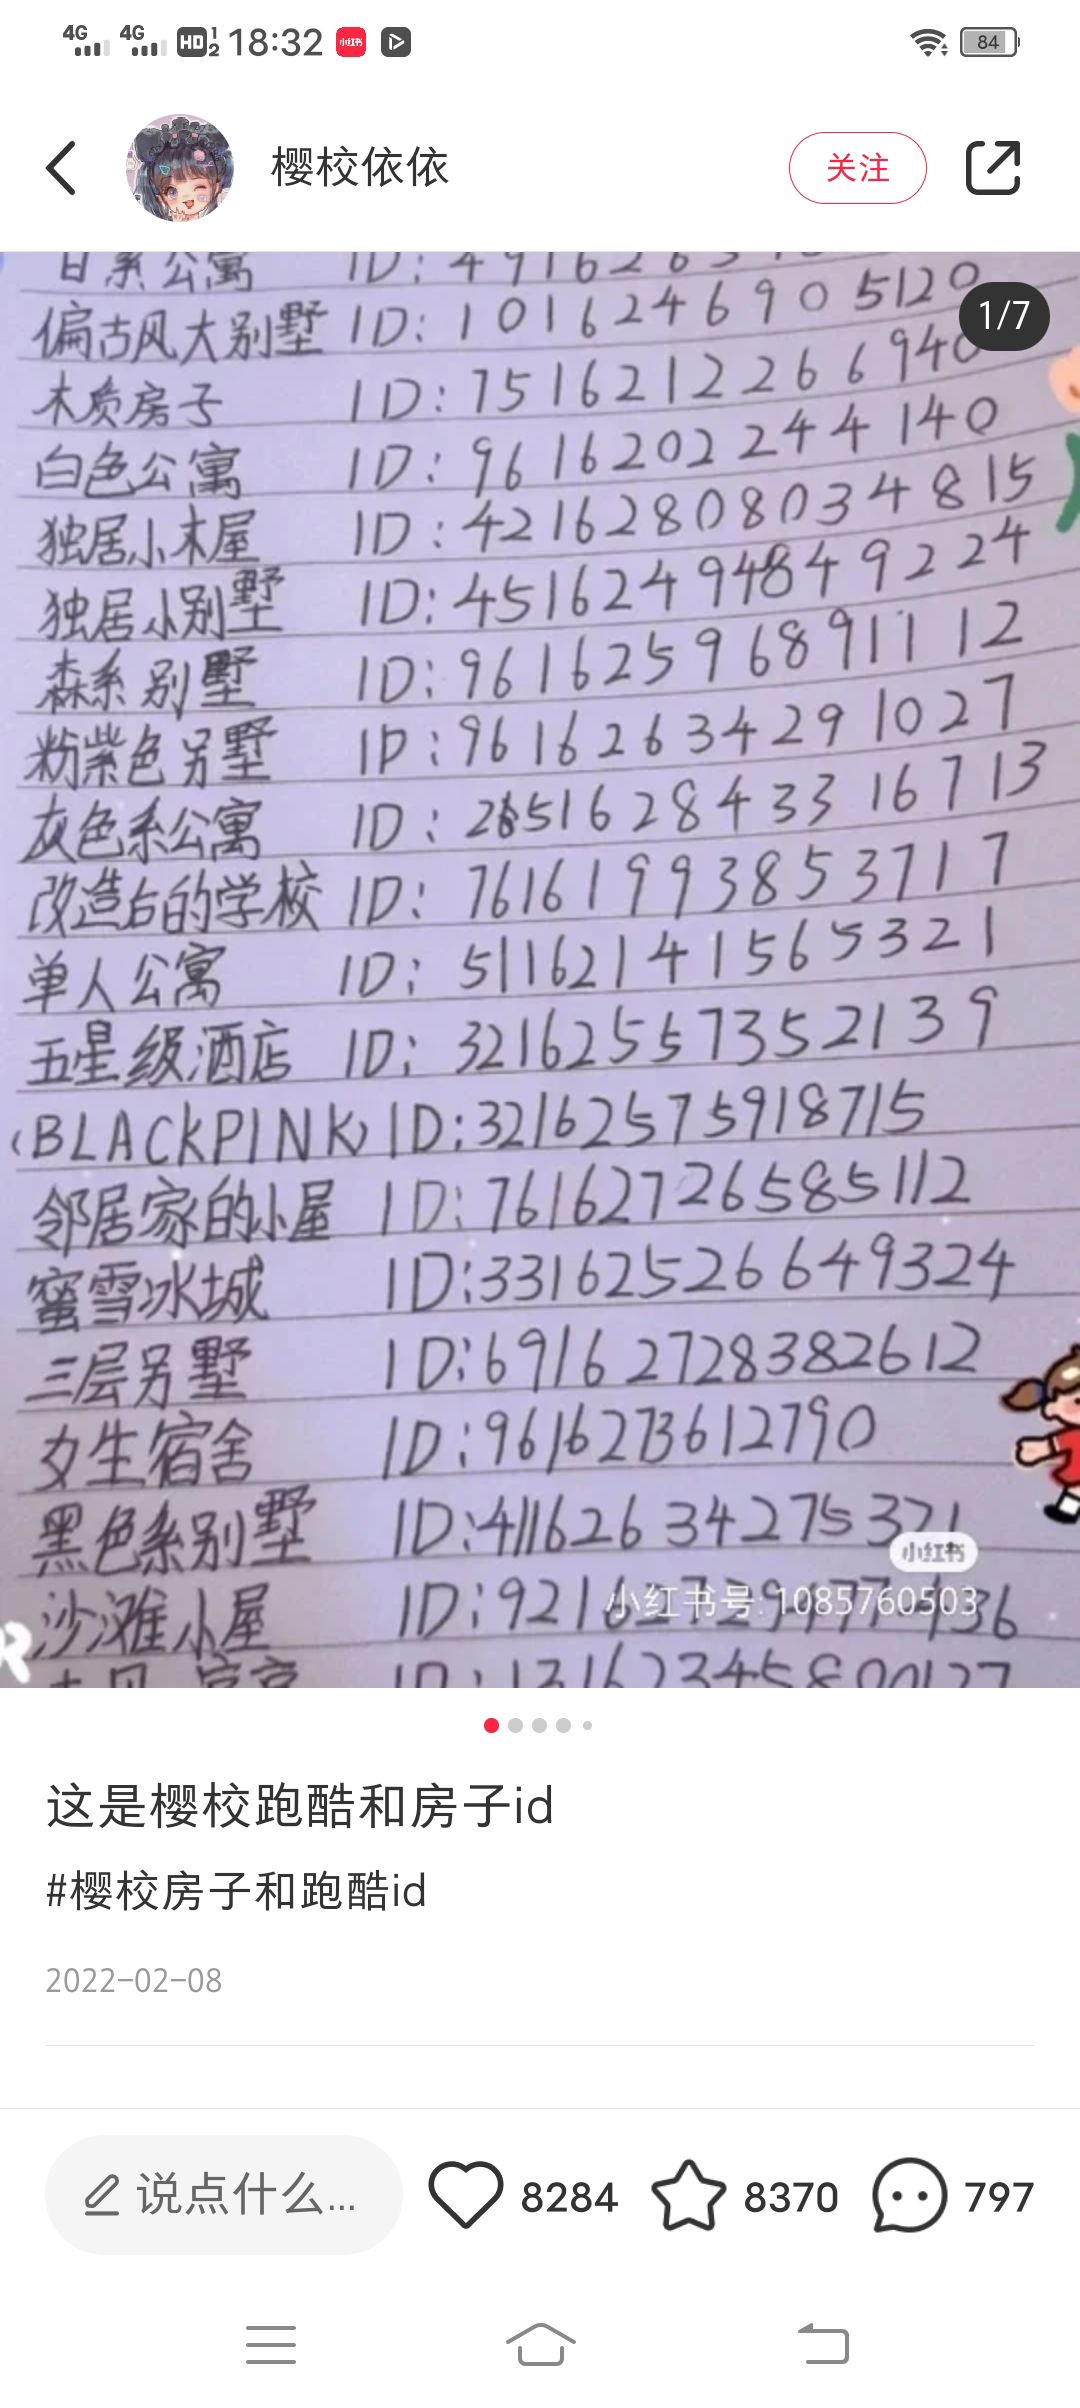 4G 4G HD 1 2 18:32 小红书 84
樱校依依
关注
日系公寓
1/7
偏古风大别墅 ID: 1016246905120
木质房子 ID: 7516212266940
白色公寓 ID: 9616202244140
独居小木屋 ID: 42162808034815
独居小别墅 ID: 45162494849224
森系别墅 ID: 96162596891112
粉紫色另墅 ID: 96162634291027
灰色系公寓
改造后的学校 ID: 76161993853717
单人公寓 ID: 51162141565321
五星级酒店 ID: 32162557352139
(BLACKPINK) ID:32162575918715
邻居家的小屋 ID: 76162726585112
蜜雪冰城 ID:33162526649324
三层另墅 ID:69162728382612
女生宿舍 ID:9616273612790
黑色系别墅 ID:41162634275321
小红书
沙滩小屋
小红书号: 1085760503
这是樱校跑酷和房子id
#樱校房子和跑酷id
2022-02-08
说点什么... 8284 8370 797